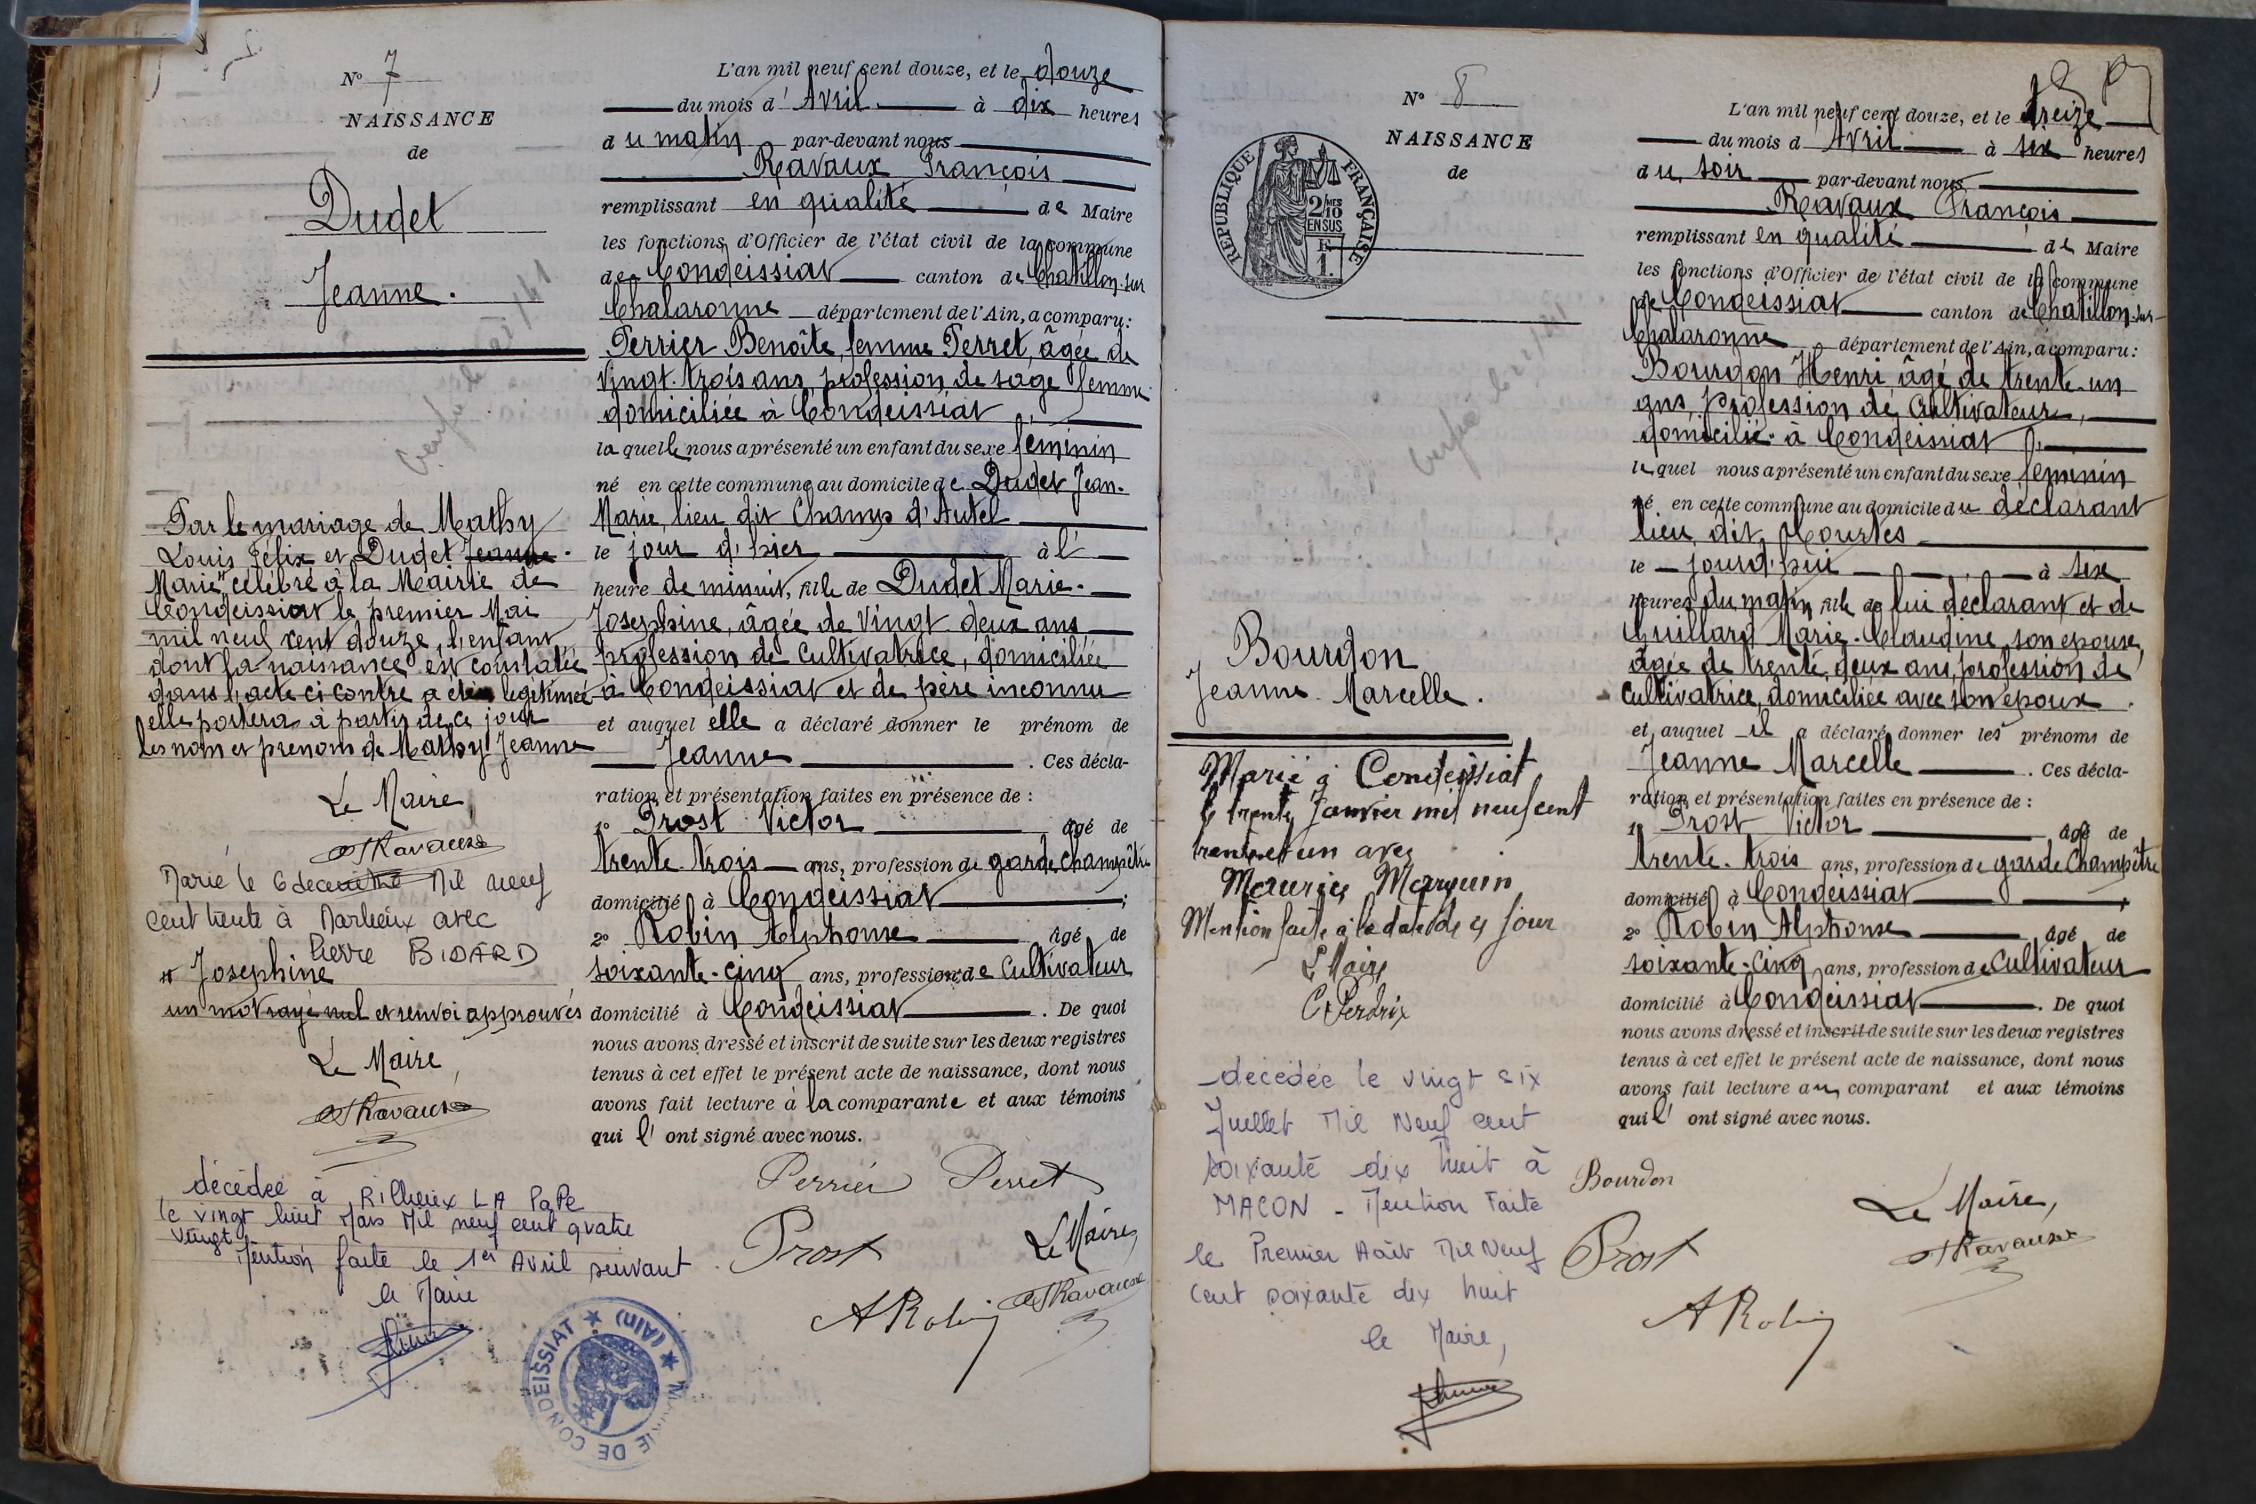 N° 7
NAISSANCE
de
Dudet
Jeanne.
Par le mariage de Mathy
Louis Félix et Dudet Jeanne
Marie # célébré à la Mairie de
Condeissiat le premier Mai
mil neuf cent douze, l'enfant
dont la naissance est constatée
dans l'acte ci contre a été légitimée
elle portera à partir de ce jour
les nom et prénom de Mathy Jeanne
Le Maire,
Ravaux
Marié le 6 decembre Mil neuf
cent trente à Marlieux avec
Pierre BIDARD
# Josephine
un mot rayé nul et renvoi approuvés
Le Maire,
Ravaux
décédée à RILLIEUX LA PAPE
le vingt huit Mars Mil neuf cent quatre
vingt
Mention faite le 1er Avril suivant
le Maire
MAIRIE DE CONDEISSIAT ★ (AIN) ★
L'an mil neuf cent douze, et le douze
du mois d'Avril à dix heures
du matin par-devant nous
Ravaux François
remplissant en qualité de Maire
les fonctions d'Officier de l'état civil de la commune
de Condeissiat canton de Chatillon-sur
Chalaronne département de l'Ain, a comparu:
Perrier Benoîte, femme Perret, âgée de
vingt-trois ans, profession de sage femme
domiciliée à Condeissiat
laquelle nous a présenté un enfant du sexe féminin
né en cette commune au domicile de Dudet Jean-
Marie, lieu dit Champ d'Autel
le jour d'hier à l'
heure de minuit, fille de Dudet Marie-
Josephine, âgée de vingt deux ans
profession de cultivatrice, domiciliée
à Condeissiat et de père inconnu
et auquel elle a déclaré donner le prénom de
Jeanne. Ces décla-
ration et présentation faites en présence de :
1° Prost Victor âgé de
trente-trois ans, profession de garde champêtre
domicilié à Condeissiat ;
2° Robin Alphonse âgé de
soixante-cinq ans, profession de Cultivateur
domicilié à Condeissiat. De quoi
nous avons dressé et inscrit de suite sur les deux registres
tenus à cet effet le présent acte de naissance, dont nous
avons fait lecture à la comparante et aux témoins
qui l'ont signé avec nous.
Perrier Perret
Prost
Le Maire,
A Robin
Ravaux
N° 8
NAISSANCE
de
REPUBLIQUE FRANÇAISE
2/10 MES
EN SUS
E.
1.
Bourdon
Jeanne Marcelle.
Marié à Condeissiat
le trente Janvier mil neuf cent
trente et un avec
Maurice Marguin
Mention faite à la date de ce jour
Le Maire
C. Perdrix
décédée le vingt six
Juillet Mil Neuf cent
soixante dix huit à
MACON - Mention Faite
le Premier Août Mil Neuf
Cent soixante dix huit
le Maire,
L'an mil neuf cent douze, et le treize
du mois d'Avril à six heures
du soir par-devant nous
Ravaux François
remplissant en qualité de Maire
les fonctions d'Officier de l'état civil de la commune
de Condeissiat canton de Chatillon-sur-
Chalaronne département de l'Ain, a comparu:
Bourdon Henri, âgé de trente-un
ans, profession de Cultivateur,
domicilié à Condeissiat
lequel nous a présenté un enfant du sexe féminin
né en cette commune au domicile du déclarant
lieu dit Courtes
le jourd'hui à six
heures du matin, fille de lui déclarant et de
Guillard Marie-Claudine, son épouse,
âgée de trente-deux ans, profession de
cultivatrice, domiciliée avec son époux.
et auquel il a déclaré donner les prénoms de
Jeanne Marcelle. Ces décla-
ration et présentation faites en présence de :
1° Prost Victor âgé de
trente-trois ans, profession de garde Champêtre
domicilié à Condeissiat ;
2° Robin Alphonse âgé de
soixante-cinq ans, profession de Cultivateur
domicilié à Condeissiat. De quoi
nous avons dressé et inscrit de suite sur les deux registres
tenus à cet effet le présent acte de naissance, dont nous
avons fait lecture au comparant et aux témoins
qui l'ont signé avec nous.
Bourdon
Le Maire,
Prost
Ravaux
A Robin